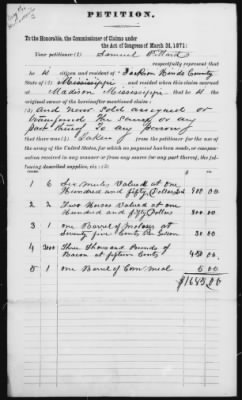 PETITION.
To the Honorable, the Commissioner of Claims under
the Act of Congress of March 3d, 1871:
Your petitioner (1) Samuel
respectfully represent that
he is citizen and resident of Jackson Hinds County
State of (2) Mississippi and resided when this claim accrued at
Madison Mississippi that he is the original
owner of the hereinafter mentioned claim:
and never sold assigned or
transferred the same or any
part thereof to any person;
that there was (4) Taken from the petitioner for the use of
the army of the United States, for which no payment has been made, or compensation
received in any manner or from any source for any part thereof, the following
described supplies, viz: (5)
1 6 Six mules Valued at one
Hundred and fifty Dollars 900 00
2 2 Two Horses Valued at one
Hundred and fifty Dollars 300 00
3 1 one Barrel of Molases at
Seventy five Cents Per Gallon 30 00
4 3000 Three Thousand Pounds of
Bacon at fifteen Cents 450 00
5 1 one Barrel of Corn meal 5 00
$1685 00